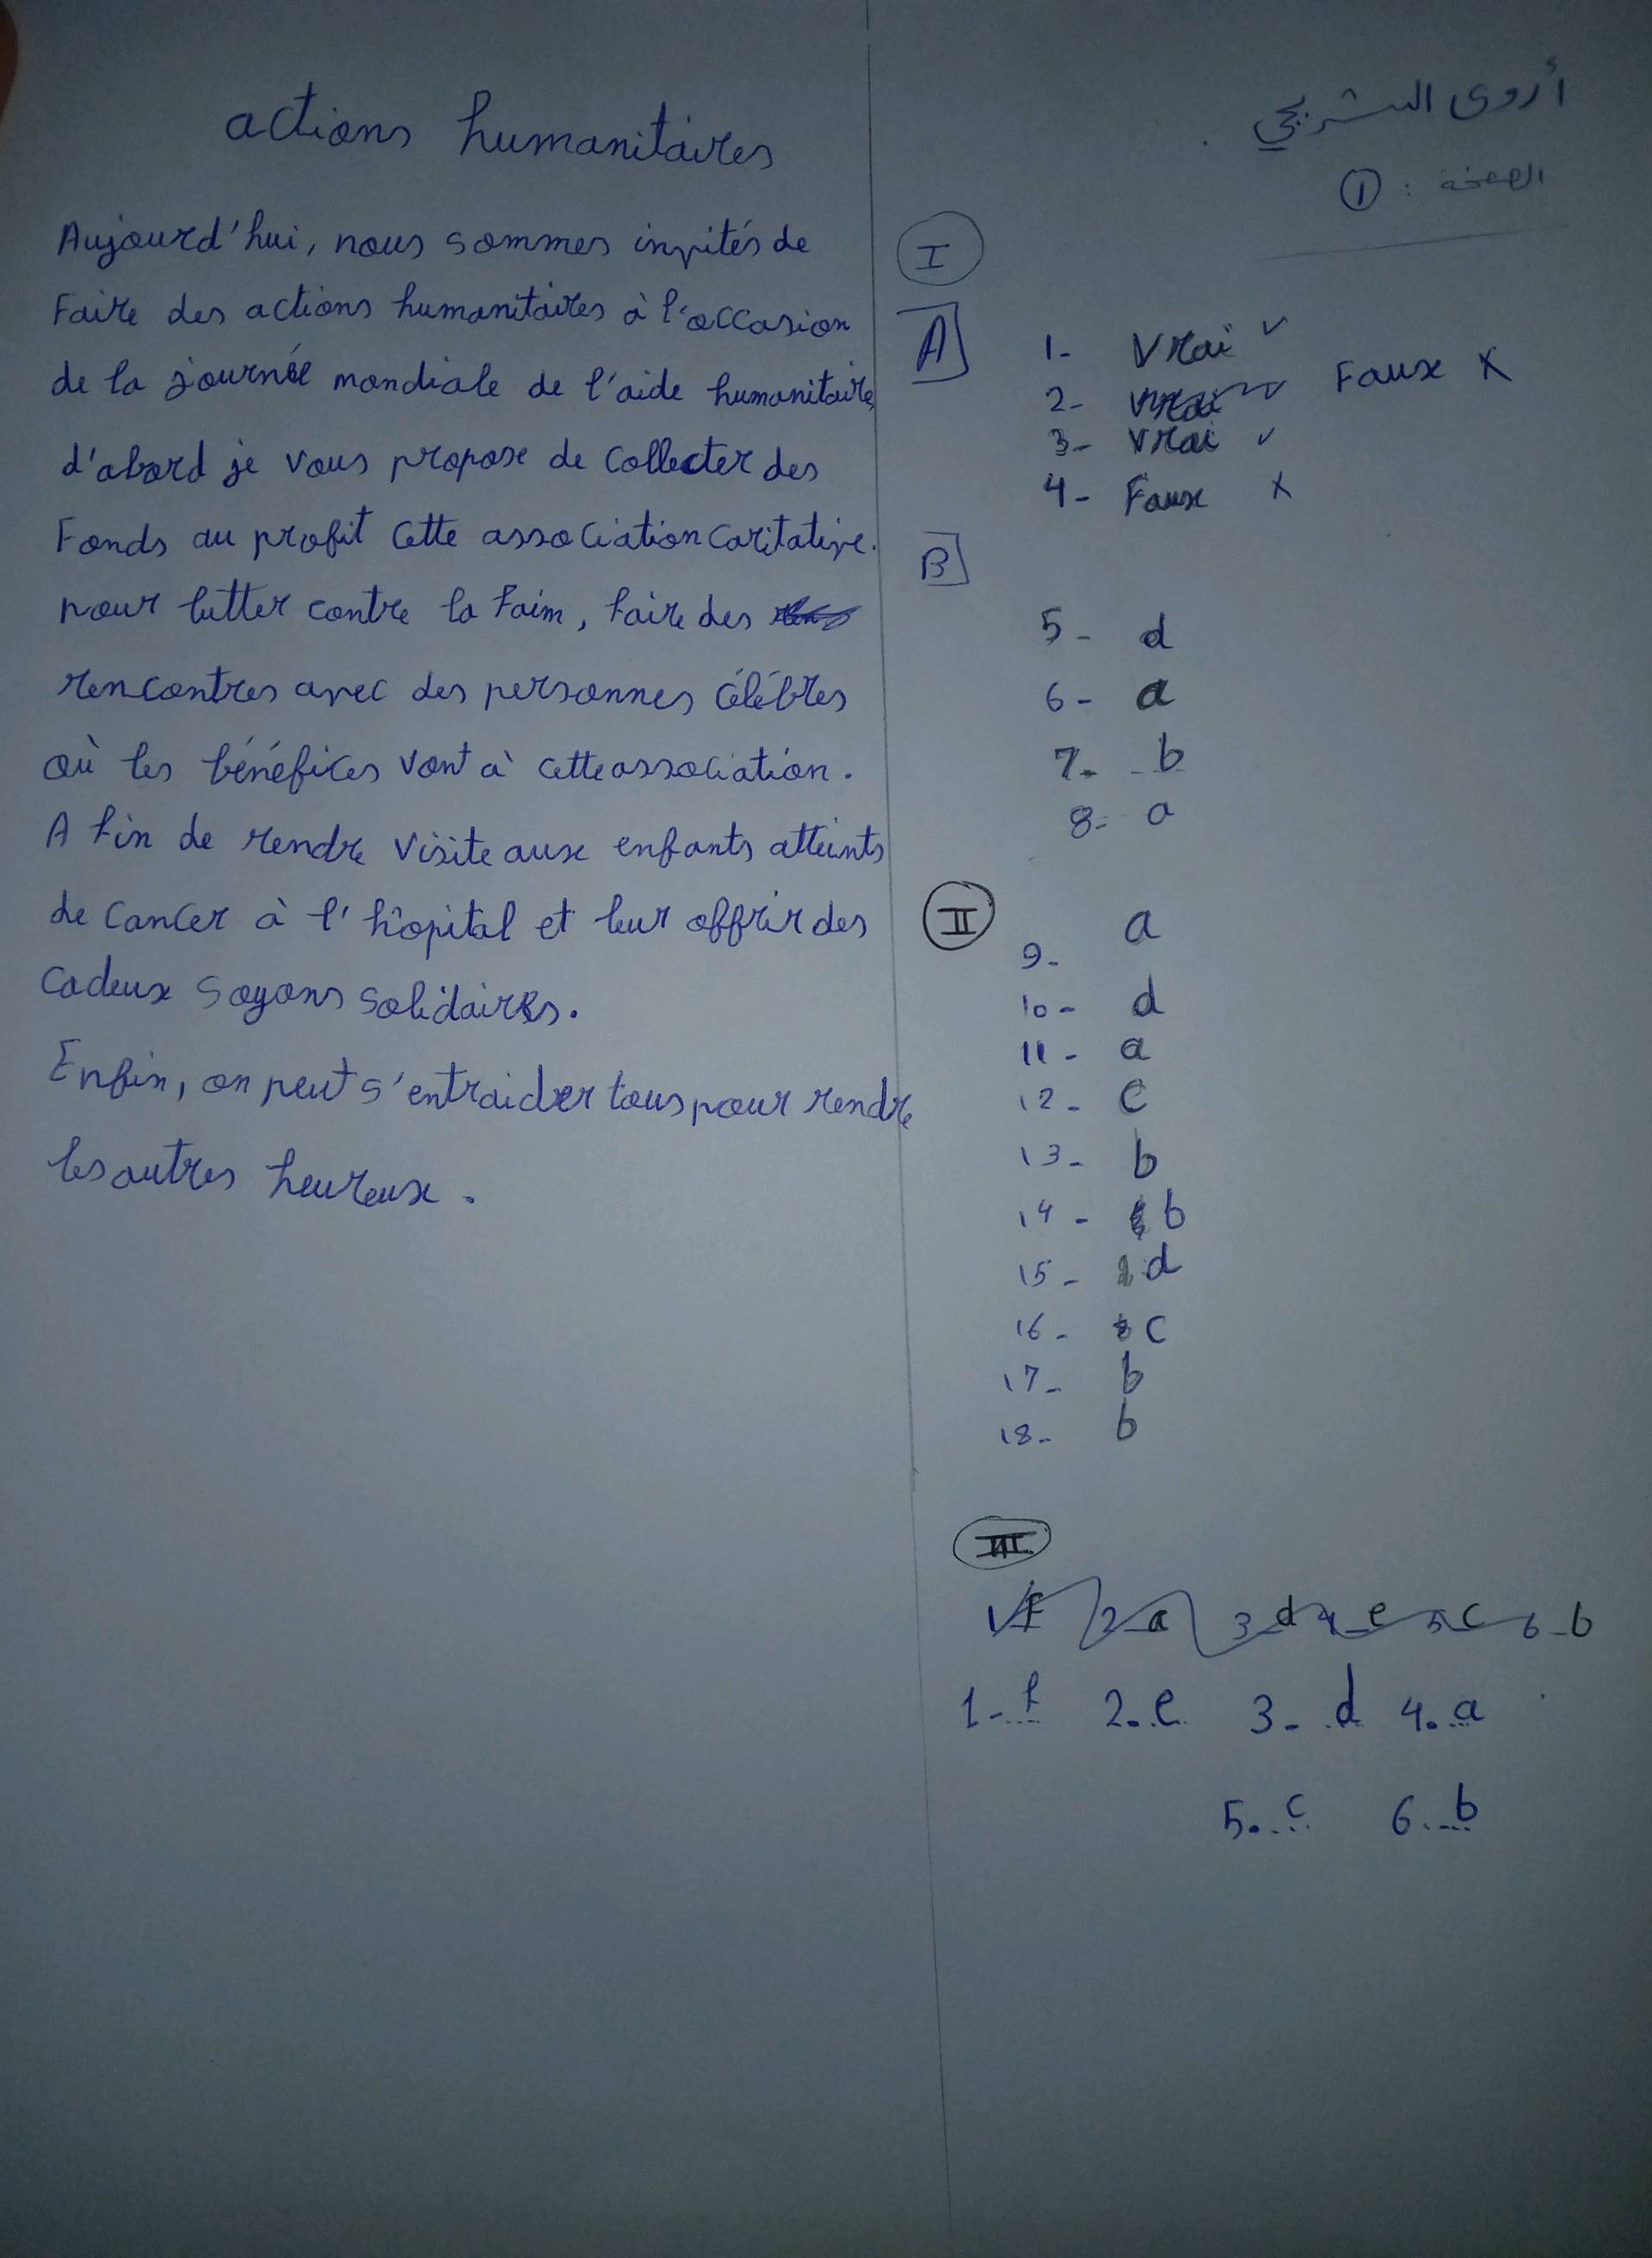 actions humanitaires
Aujourd'hui, nous sommes invités de
Faire des actions humanitaires à l'occasion
de la journée mondiale de l'aide humanitaire,
d'abord je vous propose de collecter des
Fonds au profit cette association caritative.
pour lutter contre la Faim, faire des
rencontres avec des personnes célébres
où les bénéfices vont à cette association.
A fin de rendre visite aux enfants atteints
de cancer à l'hôpital et leur offrir des
cadeux soyons solidaires.
Enfin, on peut s'entraider tous pour rendre
les autres heureux.
أروى الشربجي
الصفحة : ①
I
A
1- Vrai ✓
2- Vrai ✓ Faux X
3- Vrai ✓
4- Faux X
B
5- d
6- a
7- b
8- a
II
9- a
10- d
11- a
12- c
13- b
14- b
15- d
16- c
17- b
18- b
III
1 f 2 a 3 d 4 e 5 c 6 b
1- f 2- e 3- d 4. a
5. c 6. b